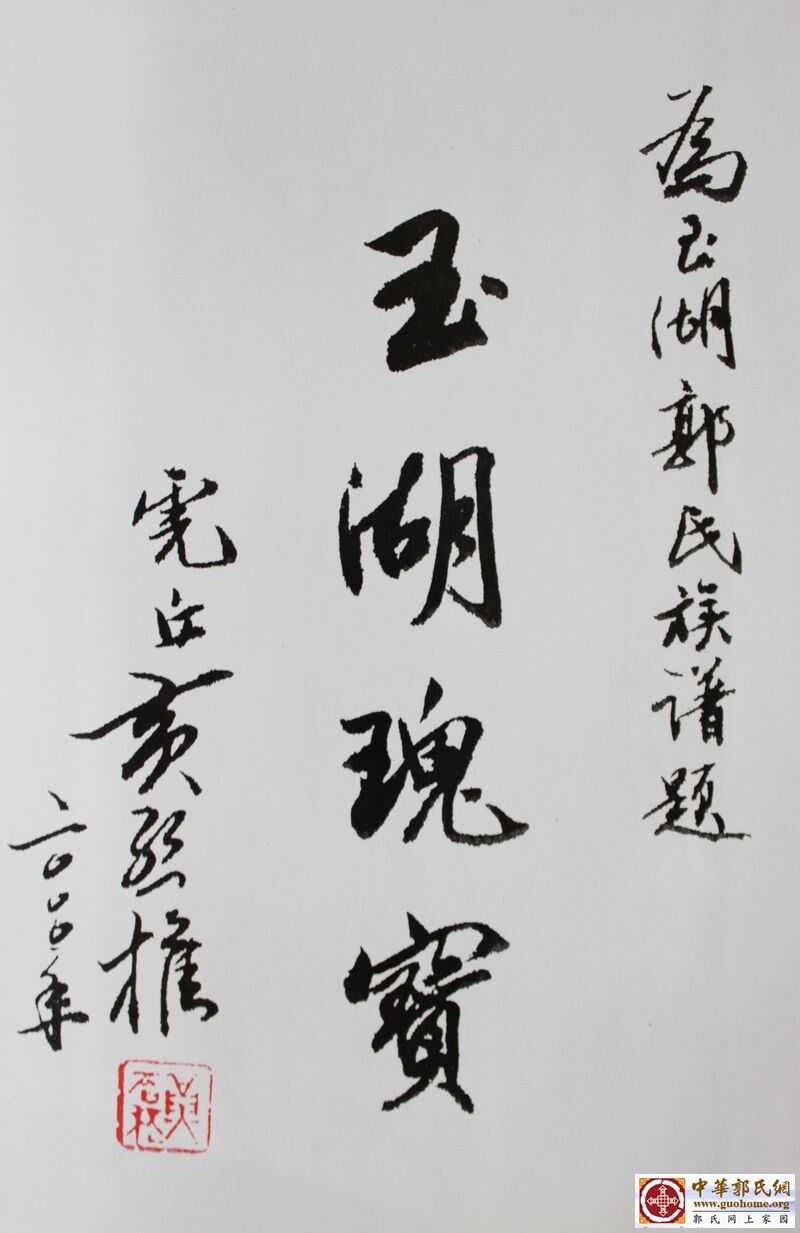 為玉湖郭氏族譜題
玉湖瑰寶
虎丘黄
二〇〇〇年
中華郭氏網
www.guohome.org
郭氏网上家园